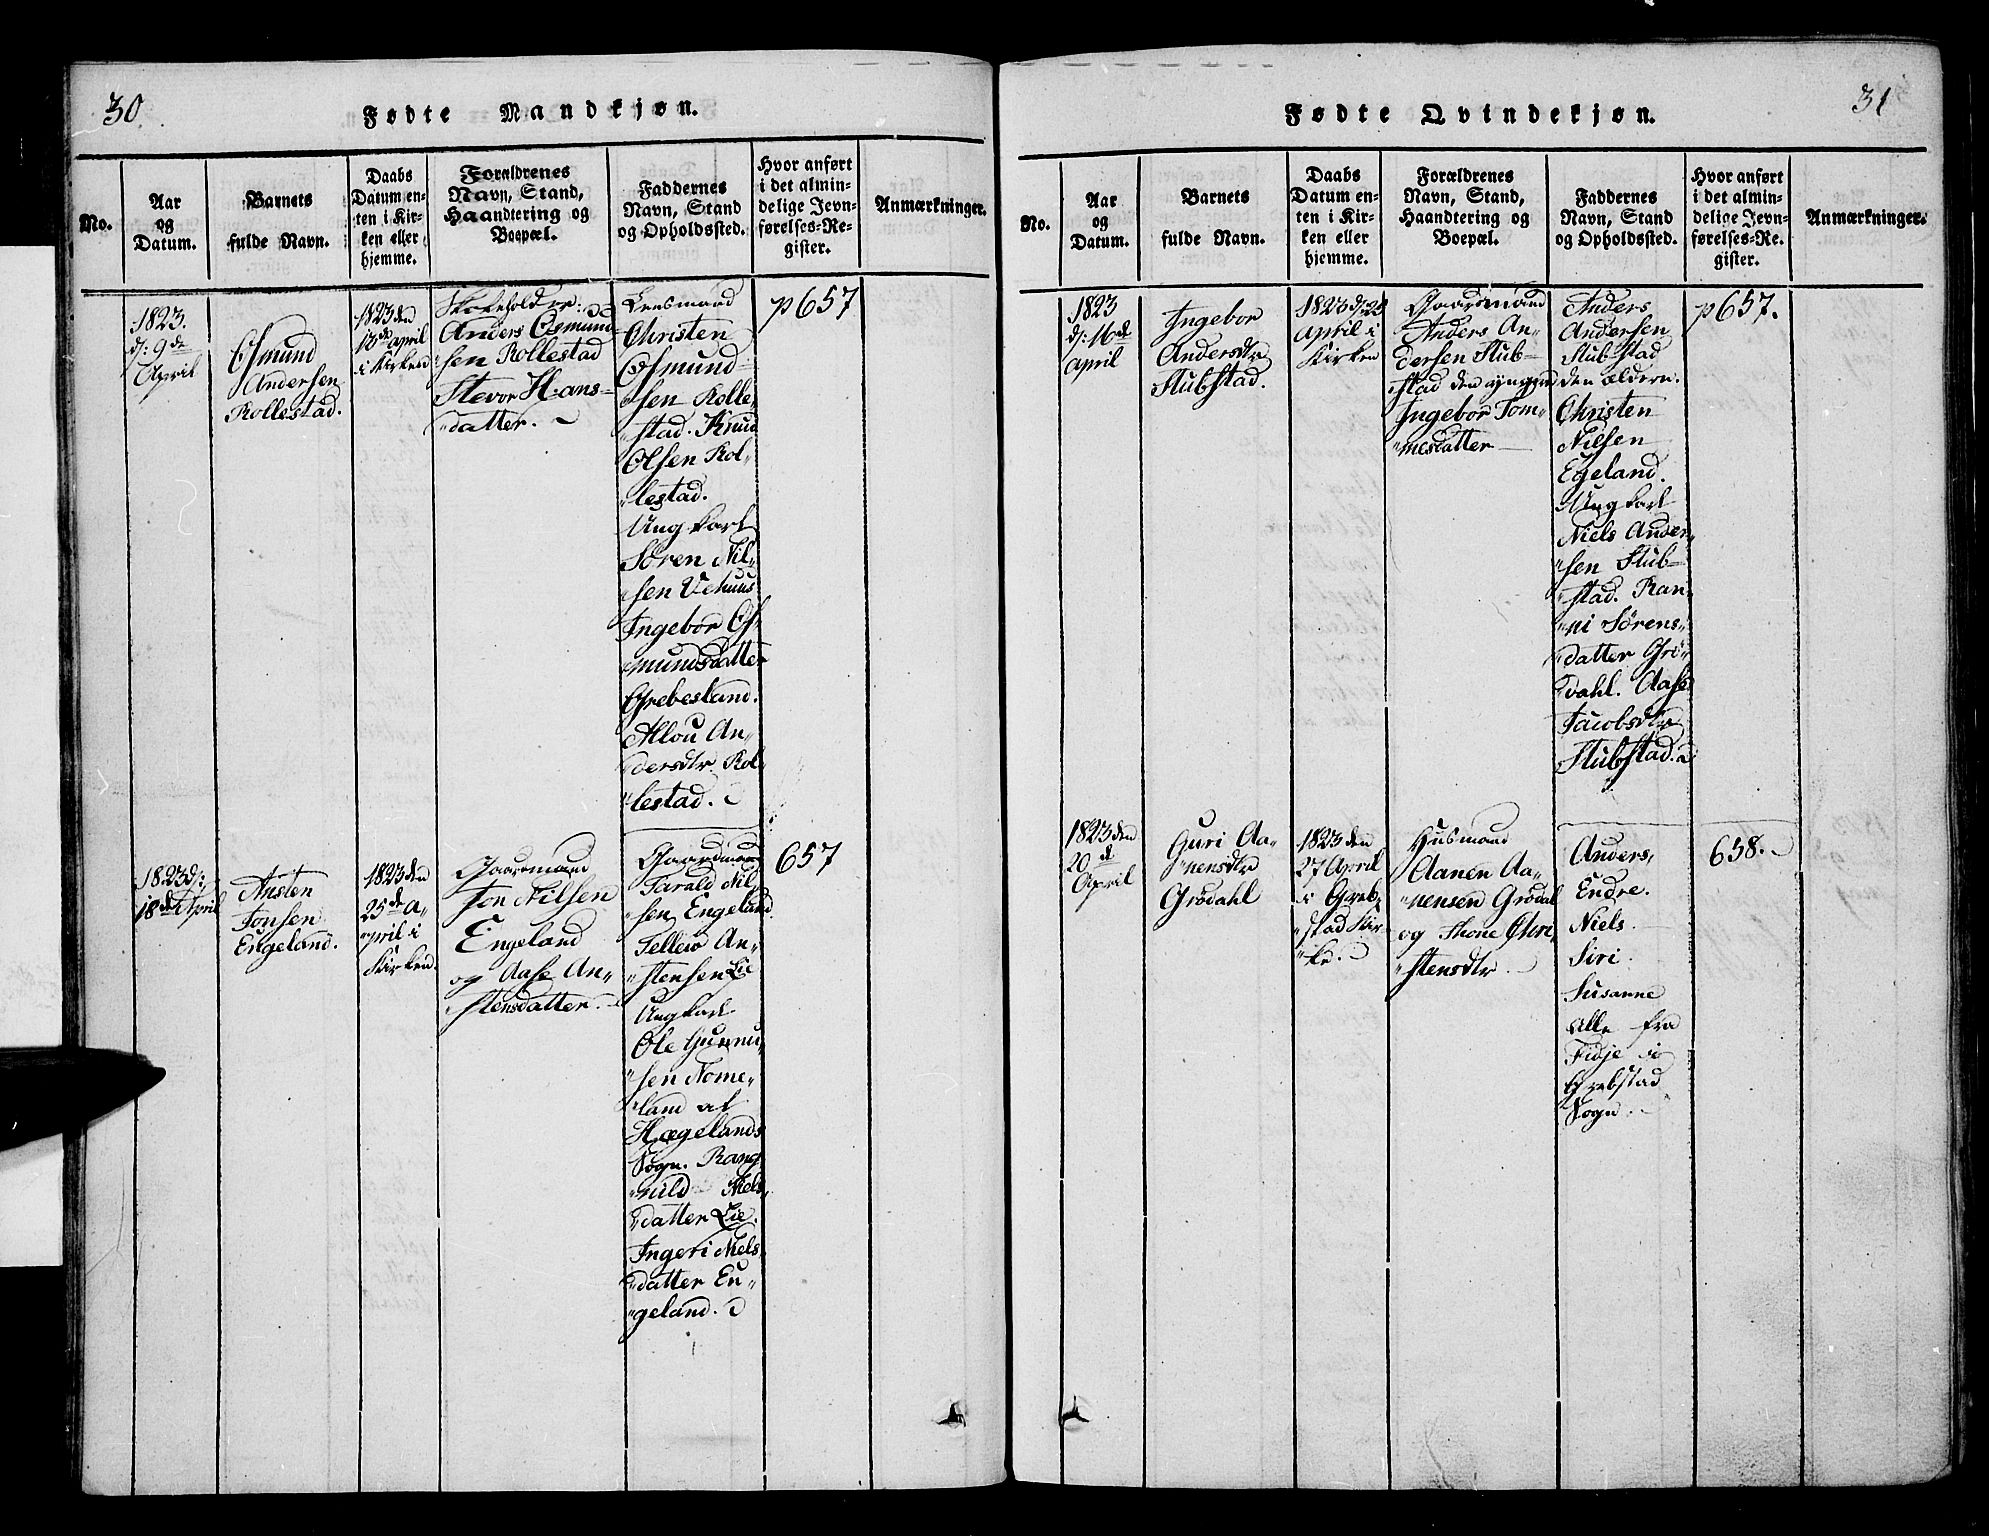 30
Fødte Mandkjøn.
No.
Aar
og
Datum.
Barnets
fulde Navn.
Daabs
Datum en-
ten i Kir-
ken eller
hjemme.
Forældrenes
Navn, Stand,
Haandtering og
Boepæl.
Faddernes
Navn, Stand
og Opholdssted.
Hvor anført
i det almin-
delige Jevn-
førelses-Re-
gister.
Anmærkninger.
1823.
d: 9de
April
Osmund
Andersen
Rollestad.
1823 den
13de april
i Kirken
Skoleholder:
Anders Osmund-
sen Rollestad
Stevor Hans-
datter.
Lensmand
Christen
Osmund-
sen Rolle-
stad. Knud
Olsen Rol-
lestad.
Ungkarl
Sören Nil-
sen Vehuus
Ingebor Os-
mundsdatter
Grebesland.
Allou An-
dersdtr. Rol-
lestad.
p 657
1823 d:
18de April
Ansten
Jonsen
Engeland.
1823 den
25de A-
pril i
Kirken.
Gaardmand
Jon Nilsen
Engeland
og Aase An-
stensdatter.
Gaardmand
Tarald Nil-
sen Engeland
Tellev An-
stensen Lie
Ungkarl
Ole Gunnu-
sen Nome-
land af
Hægelands
Sogn. Rang-
nild Niels-
datter Lie.
Ingeri Niels-
datter En-
geland.
657
31
Fødte Qvindekjøn.
No.
Aar
og
Datum.
Barnets
fulde Navn.
Daabs
Datum en-
ten i Kir-
ken eller
hjemme.
Forældrenes
Navn, Stand,
Haandtering og
Boepæl.
Faddernes
Navn, Stand
og Opholdssted.
Hvor anført
i det almin-
delige Jevn-
førelses-Re-
gister.
Anmærkninger.
1823
d: 16de
april
Ingebor
Andersdtr
Stubstad.
1823 d:
april i
Kirken
Gaardmand
Anders An-
dersen Stub-
stad den yngere
Ingebor Tom-
mesdatter
Anders
Andersen
Stubstad
den ældern.
Christen
Nielsen
Egeland.
Ungkarl
Niels Ander-
sen Stub-
stad. Ran-
ni Sörens-
datter Grö-
dahl. Aase
Jacobsdtr
Stubstad.
p 657.
1823 den
20de
April
Guri Aa-
nensdtr
Grödahl
1823 den
27 April
i Greb-
stad Kir-
ke.
Husmand
Aanen Aa-
nensen Grödal
og Thone Chri-
stensdtr
Anders,
Endre.
Niels.
Siri.
Susanne
alle fra
Fidje i
Grebstad
Sogn.
658.